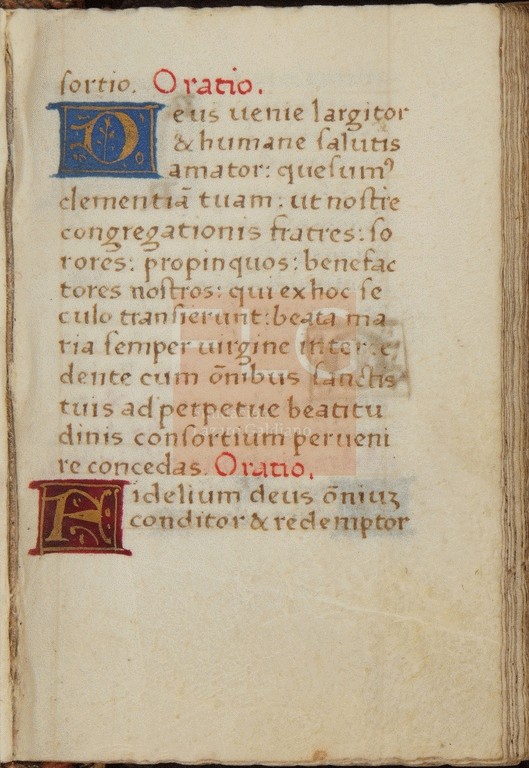 sortio. Oratio.
Deus uenie largitor
& humane salutis
amator: quesumꝰ
clementiā tuam: ut nostre
congregationis fratres: so
rores: propinquos: benefac
tores nostros: qui ex hoc se
culo transierunt: beata ma
ria semper uirgine interce
dente cum ōnibus sanctis
tuis ad perpetue beatitu
dinis consortium perueni
re concedas. Oratio.
Fidelium deus ōniuꝫ
conditor & redemptor
Lázaro Galdiano